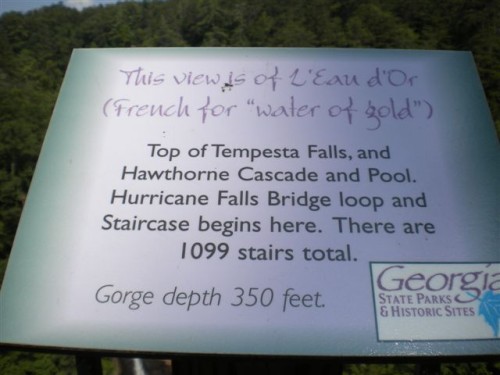 This view is of L'Eau d'Or
(French for "water of gold")
Top of Tempesta Falls, and
Hawthorne Cascade and Pool.
Hurricane Falls Bridge loop and
Staircase begins here. There are
1099 stairs total.
Gorge depth 350 feet.
Georgia
STATE PARKS
& HISTORIC SITES